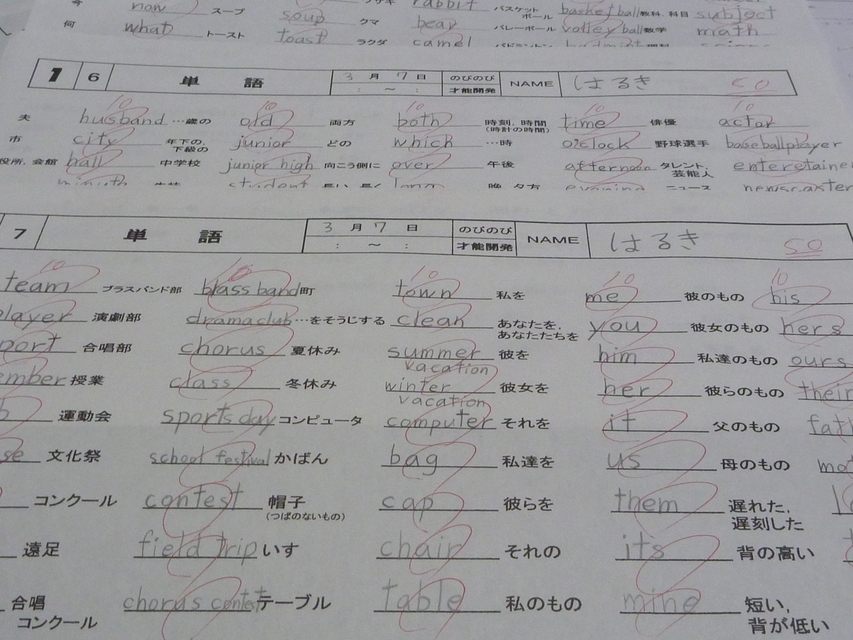 now スープ soup rabbit バスケットボール basketball 教科, 科目 subject
何 what クマ bear バレーボール volleyball 数学 math
トースト toast ラクダ camel
1 6 単語 3月7日 : ～ : のびのび才能開発 NAME はるき 50
10 10 10 10 10
夫 husband …歳の old 両方 both 時刻, 時間 (時計の時間) time 俳優 actor
市 city 年下の, 下級の junior どの which …時 o'clock 野球選手 baseballplayer
役所, 会館 hall 中学校 junior high 向こう側に over 午後 afternoon タレント, 芸能人 enteretainer
student 晩, 夕方 evening ニュース newscaster
7 単語 3月7日 : ～ : のびのび才能開発 NAME はるき 50
10 10 10 10 10
team ブラスバンド部 blass band 町 town 私を me 彼のもの his
player 演劇部 dramaclub …をそうじする clean あなたを, あなたたちを you 彼女のもの hers
port 合唱部 chorus 夏休み summer vacation 彼を him 私達のもの ours
ember 授業 class 冬休み winter vacation 彼女を her 彼らのもの their
運動会 sports day コンピュータ computer それを it 父のもの fath
se 文化祭 school festival かばん bag 私達を us 母のもの mo
コンクール contest 帽子 (つばのないもの) cap 彼らを them 遅れた, 遅刻した
遠足 field trip いす chair それの its 背の高い
合唱コンクール chorus contest テーブル table 私のもの mine 短い, 背が低い